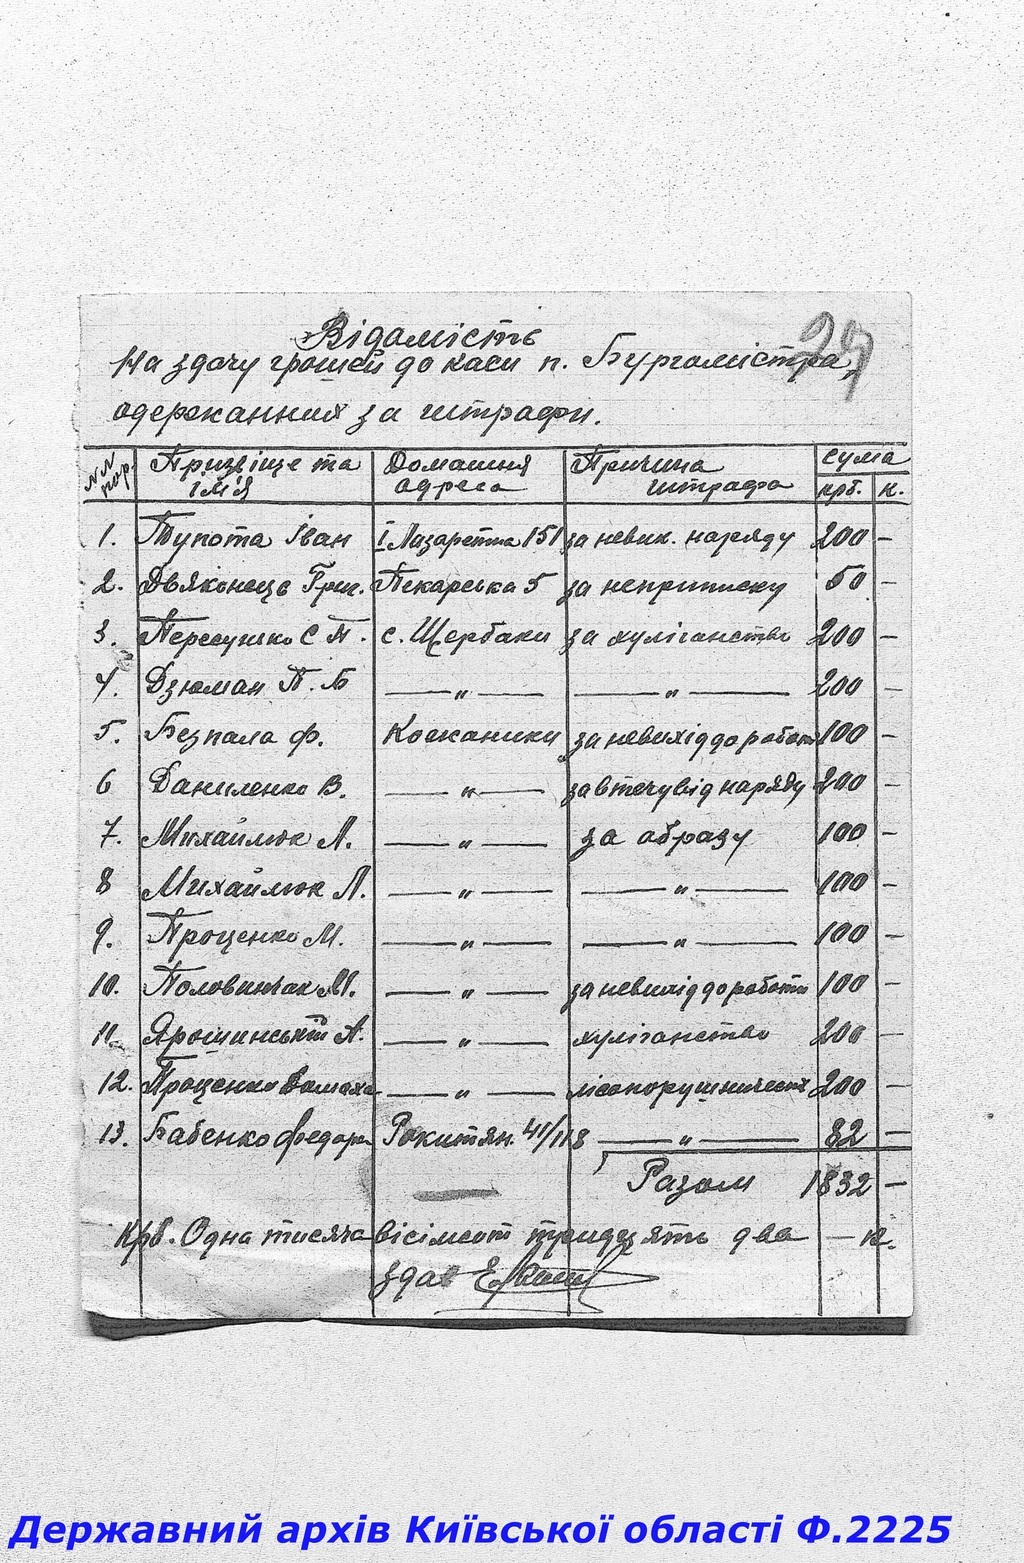 Відамість
29
На здачу грошей до каси п. Бургомістра,
одержанних за штрафи.
№№ пор. Призвіще та імія Домашня адреса Причина штрафа сума крб. к.
1. Тупота Іван І Лазаретна 151 за невик. наряду 200 —
2. Двяконець Григ. Пекарська 5 за неприписку 50 —
3. Пересунько С П. с. Щербаки за хуліганство 200 —
4. Дзюман П. Б — " — — " — 200 —
5. Безпала Ф. Кожаники за невихід до роботи 100 —
6 Даниленко В. — " — за втечу від наряду 200 —
7. Михайлюк А. — " — за образу 100 —
8 Михайлюк Л. — " — — " — 100 —
9. Проценко М. — " — — " — 100 —
10. Половинчак М. — " — за невихід до роботи 100 —
11. Ярошинський А. — " — хуліганство 200 —
12. Проценко Домаха — " — лісопорушничест. 200 —
13. Бабенко Федора Рокитян. 41/118 — " — 82 —
Разом 1832 —
Крб. Одна тисяча вісімсот тридцять два — к.
здав
Державний архів Київської області Ф.2225